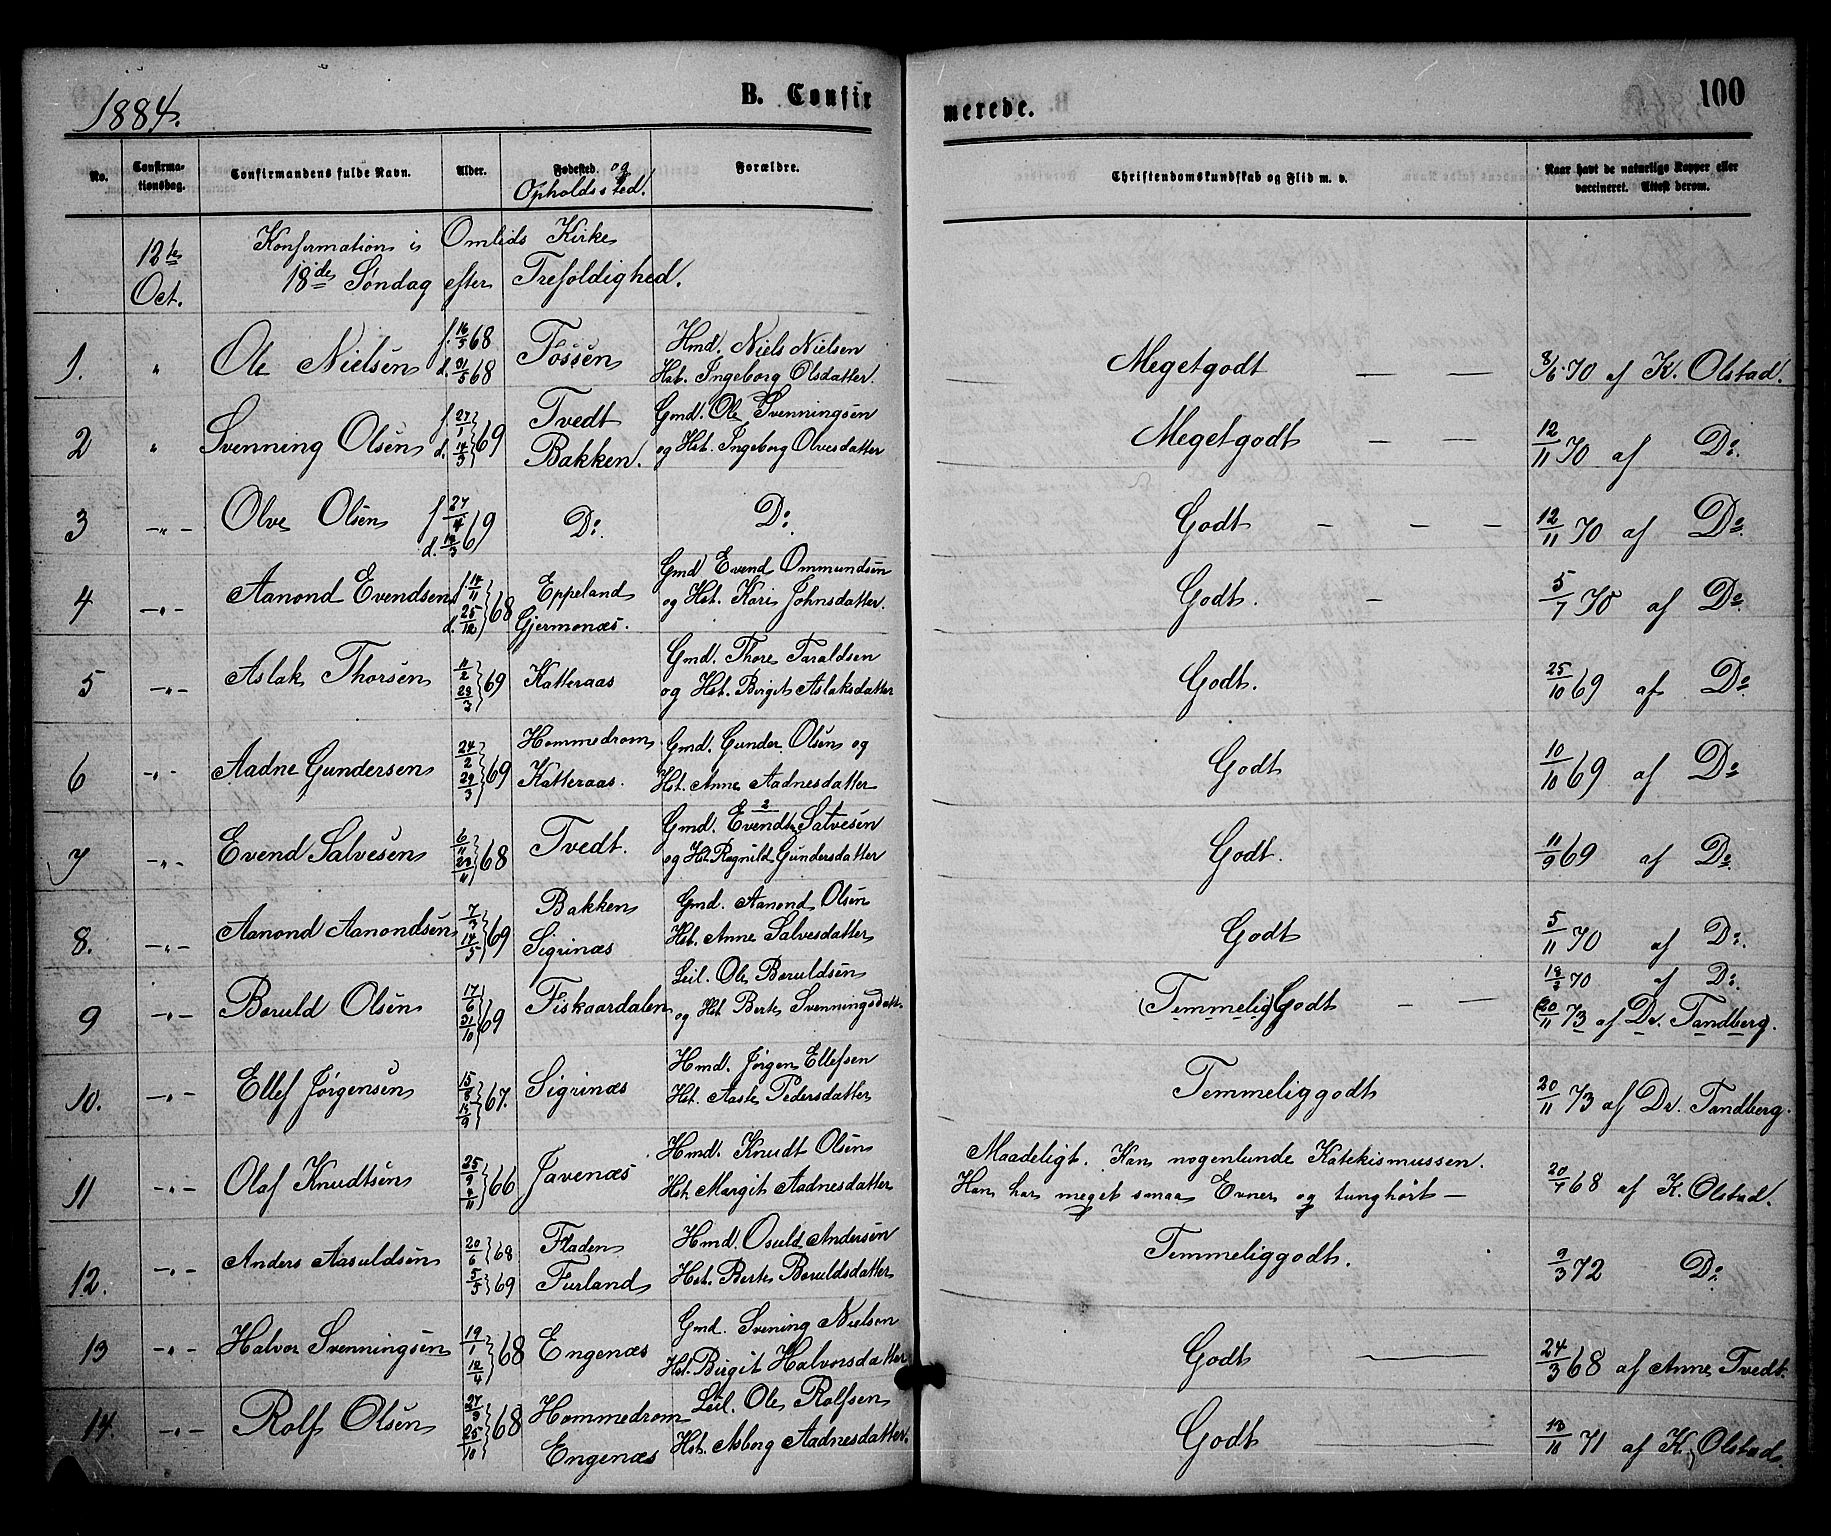 1884.
B. Confir
merede.
100
No.
Confirma-
tionsdag.
Confirmandens fulde Navn.
Alder.
Fødested. og
Opholdssted.
Forældre.
Christendomskundskab og Flid m. v.
Naar havt de naturlige Kopper eller
vaccineret. Attest derom.
12te Oct.
Konfirmation i Omlids Kirke
18de Søndag efter Trefoldighed.
1. " Ole Nielsen f. 16/5 68 d. 31/5 68 Tössen
Hmd. Niels Nielsen
Hst. Ingeborg Olsdatter.
Megetgodt — — 8/6 70 af K. Olstad.
2 " Svenning Olsen f. 27/1 d. 14/3 69 Tvedt
Bakken.
Gmd. Ole Svenningsen
og Hst. Ingeborg Olvesdatter
Megetgodt — — 12/11 70 af Do.
3 -"- Olve Olsen f 27/4 69 d. Do. Do.
Godt — — — 12/11 70 af Do.
4 -"- Aanond Evendsen f. 14/11 d. 25/12 68 Eppeland
Gjermonæs.
Gmd Evend Ommundsen
og Hst. Kari Johnsdatter.
Godt. — 5/7 70 af Do.
5 -"- Aslak Thorsen 11/2 69 Katteraas
Gmd. Thore Taraldsen
og Hst. Birgit Aslaksdatter
Godt. 25/10 69 af Do.
6 -"- Aadne Gundersen 24/2 29/3 69 Hommedrom
Katteraas.
Gmd. Gunder Olsen og
Hst. Anne Aadnesdatter
Godt 10/10 69 af Do.
7 -"- Evend Salvesen 6/11 68 Tvedt.
Gmd. Evendt Salvesen
og Hst. Ragnild Gundersdatter
Godt. 11/9 69 af Do.
8. -"- Aanond Aanondsen 7/3 14/5 69 Bakken
Sigrinæs
Gmd. Aanond Olsen
Hst. Anne Salvesdatter
Godt 5/11 70 af Do.
9 -"- Boruld Olsen 17/6 31/10 69 Fiskaardalen
Leil. Ole Boruldsen
og Hst Berte Svenningsdatt.
(Temmelig) Godt — — 70 af Do.
(20/11 73 af Dr. Tandberg.
10. -"- Ellef Jørgensen 15/8 67. Sigrinæs
Hmd. Jørgen Ellefsen
Hst. Aaste Pedersdatter
Temmeliggodt 20/11 73 af Dr. Tandberg.
11 -"- Olaf Knudtsen 25/9 66 Javenæs
Hmd. Knudt Olsen
Hst. Margit Aadnesdatter
Maadeligt. Kan nogenlunde Katekismussen.
Han har meget smaa Evner og tunghört —
20/7 68 af K. Olstad.
12. -"- Anders Aasuldsen 20/6 68 5/5 69 Fladen
Furland
Hmd. Osuld Andersen
Hst. Berte Boruldsdatter
Temmeliggodt. 9/3 72 Do.
13 -"- Halvor Svenningsen 19/1 12/4 68 Engenæs
Gmd. Svening Nielsen
Hst. Birgit Halvorsdatter
Godt — 24/3 68 af Anne Tvedt.
14. -"- Rolf Olsen 25/10 68 Hommedrom
Engenæs
Leil. Ole Rolfsen
Hst. Asborg Aadnesdatter.
Godt — 71 af K. Olstad.